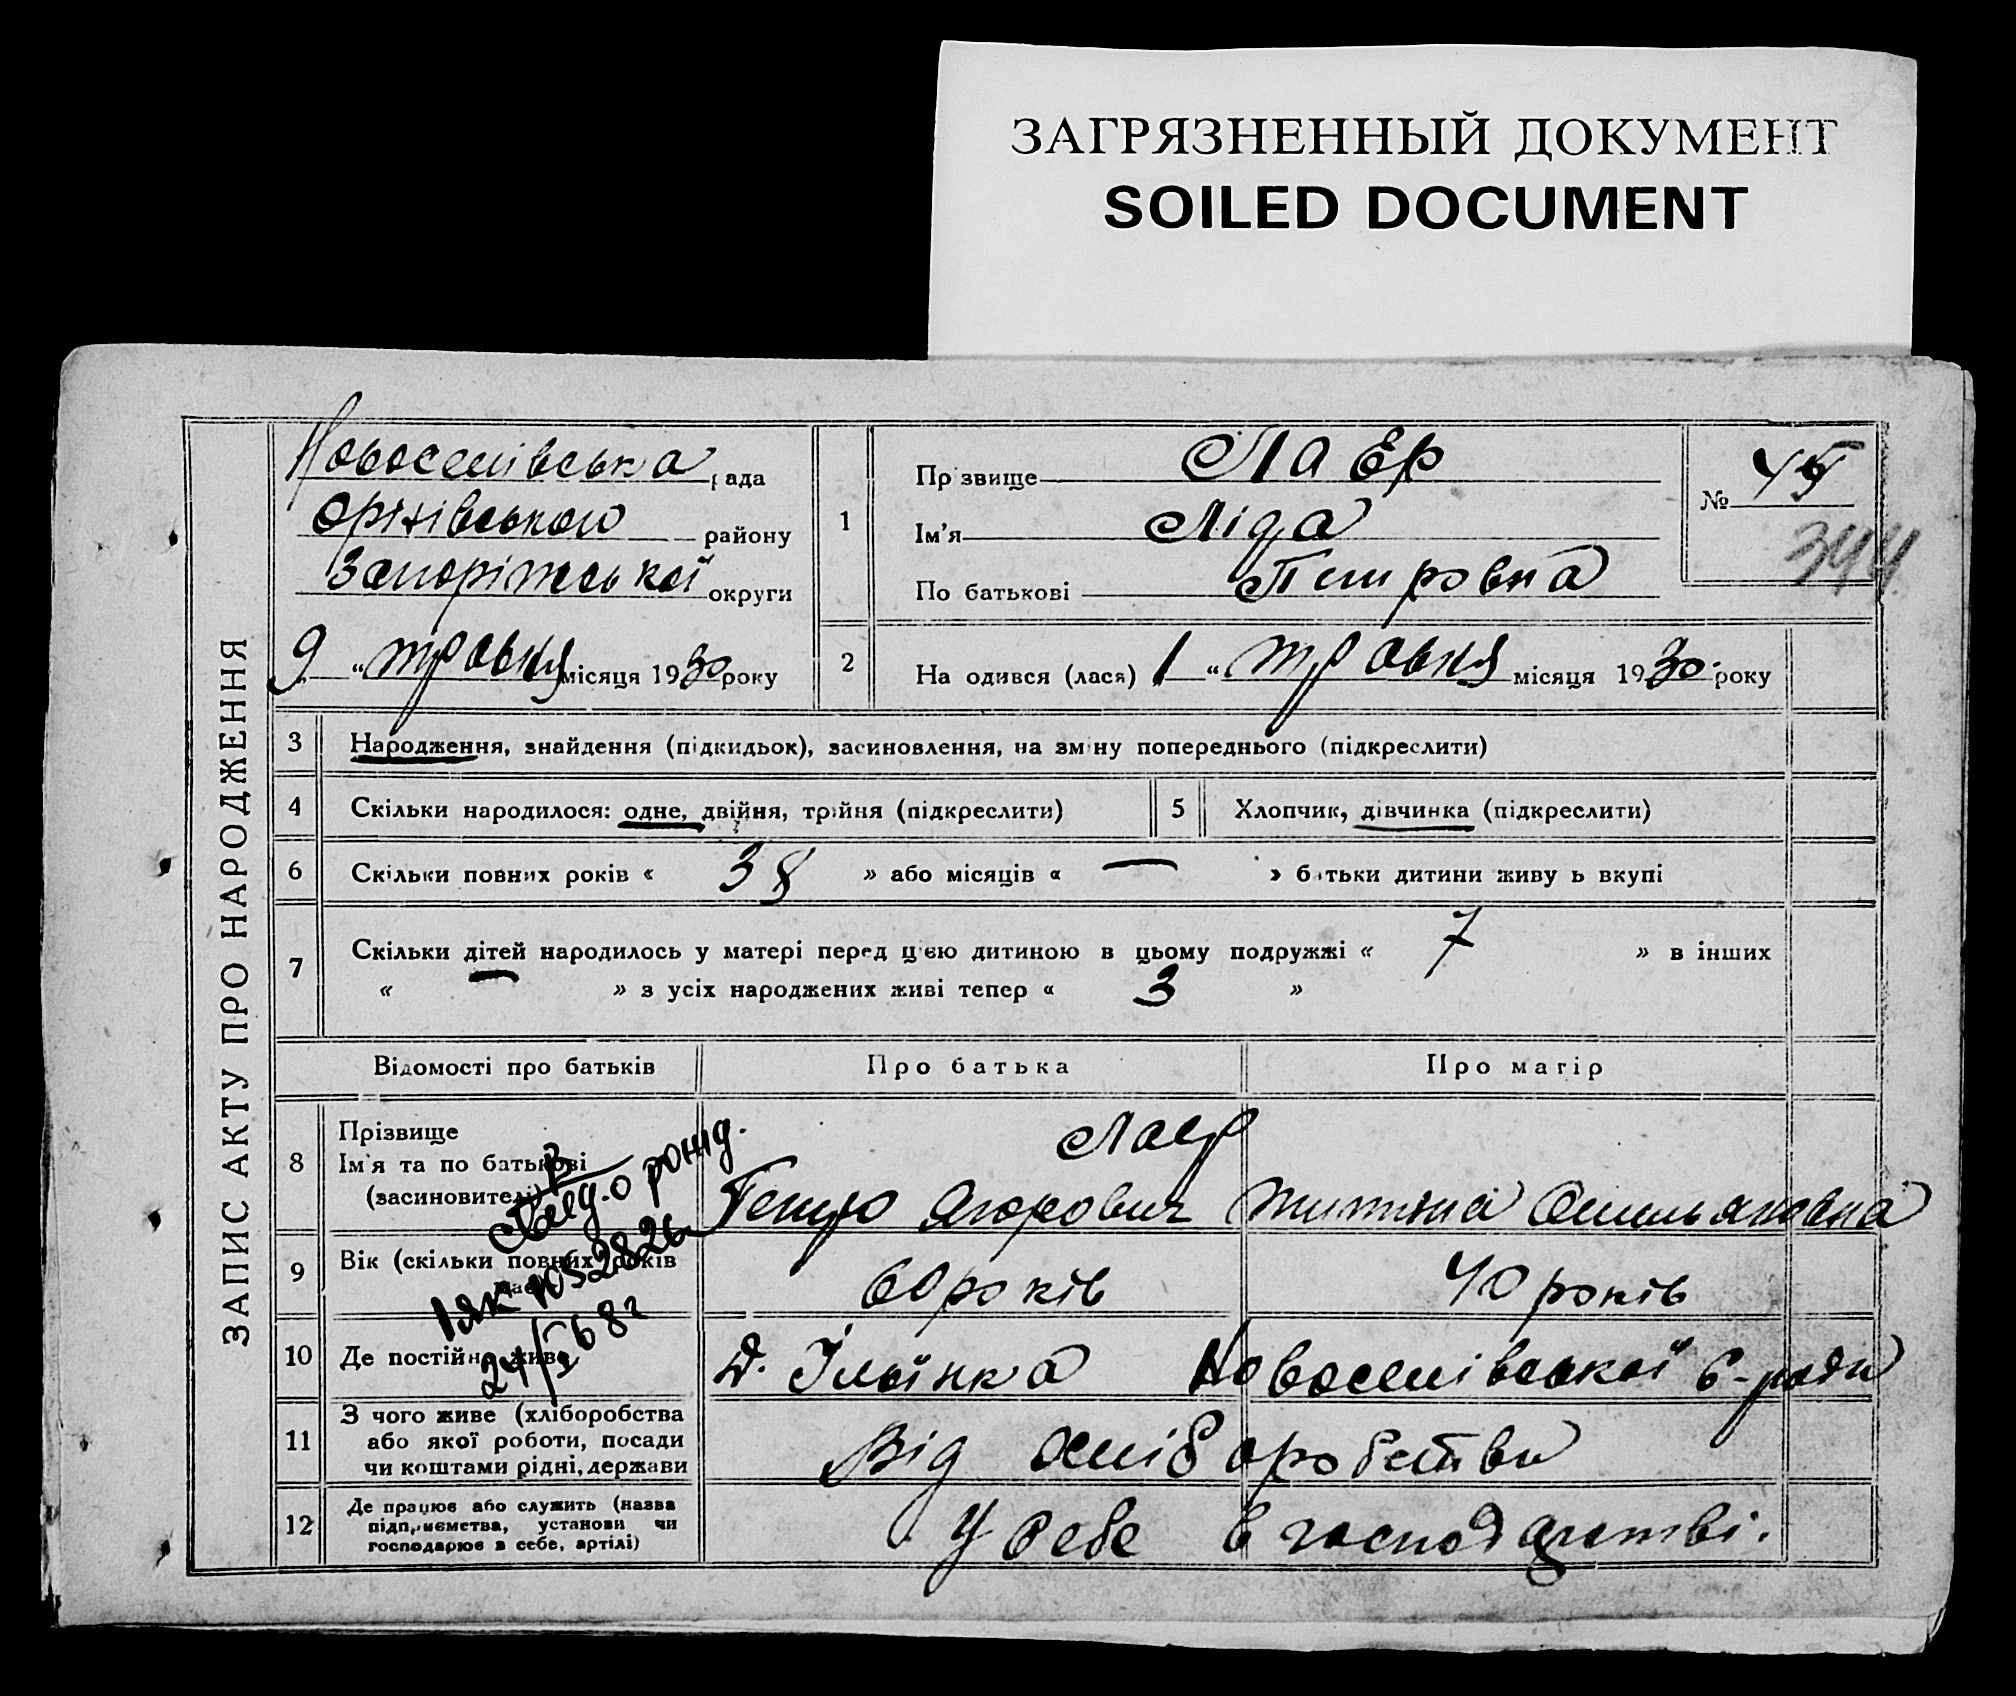 ЗАГРЯЗНЕННЫЙ ДОКУМЕНТ
SOILED DOCUMENT
ЗАПИС АКТУ ПРО НАРОДЖЕННЯ
Новоселівська рада
Оріхівського району
Запоріжської округи
9 „ травня місяця 1930 року
1
Прізвище Лаер
Ім'я Ліда
По батькові Петровна
№ 45
344
2 Народився (лася) 1 „ травня місяця 1930. року
3 Народження, знайдення (підкидьок), засиновлення, на зміну попереднього (підкреслити)
4 Скільки народилося: одне, двійня, трійня (підкреслити) 5 Хлопчик, дівчинка (підкреслити)
6 Скільки повних років « 38 » або місяців « — » батьки дитини живуть вкупі
7 Скільки дітей народилось у матері перед цією дитиною в цьому подружжі « 7 » в інших
« — » з усіх народжених живі тепер « 3 »
Відомості про батьків Про батька Про матір
8 Прізвище
Ім'я та по батькові
(засновителі)
Лаер
Петро Ягорович
9 Вік (скільки повних років
60 років 40 років
10 Де постійно живе Д. Ільїнка Новоселівської с-ради
11 З чого живе (хліборобства
або якої роботи, посади
чи коштами рідні, держави
Від хліборобства
12 Де працює або служить (назва
підприємства, установи чи
господарює в себе, артілі)
У себе в господарстві.
о рожд.
24/5 68г